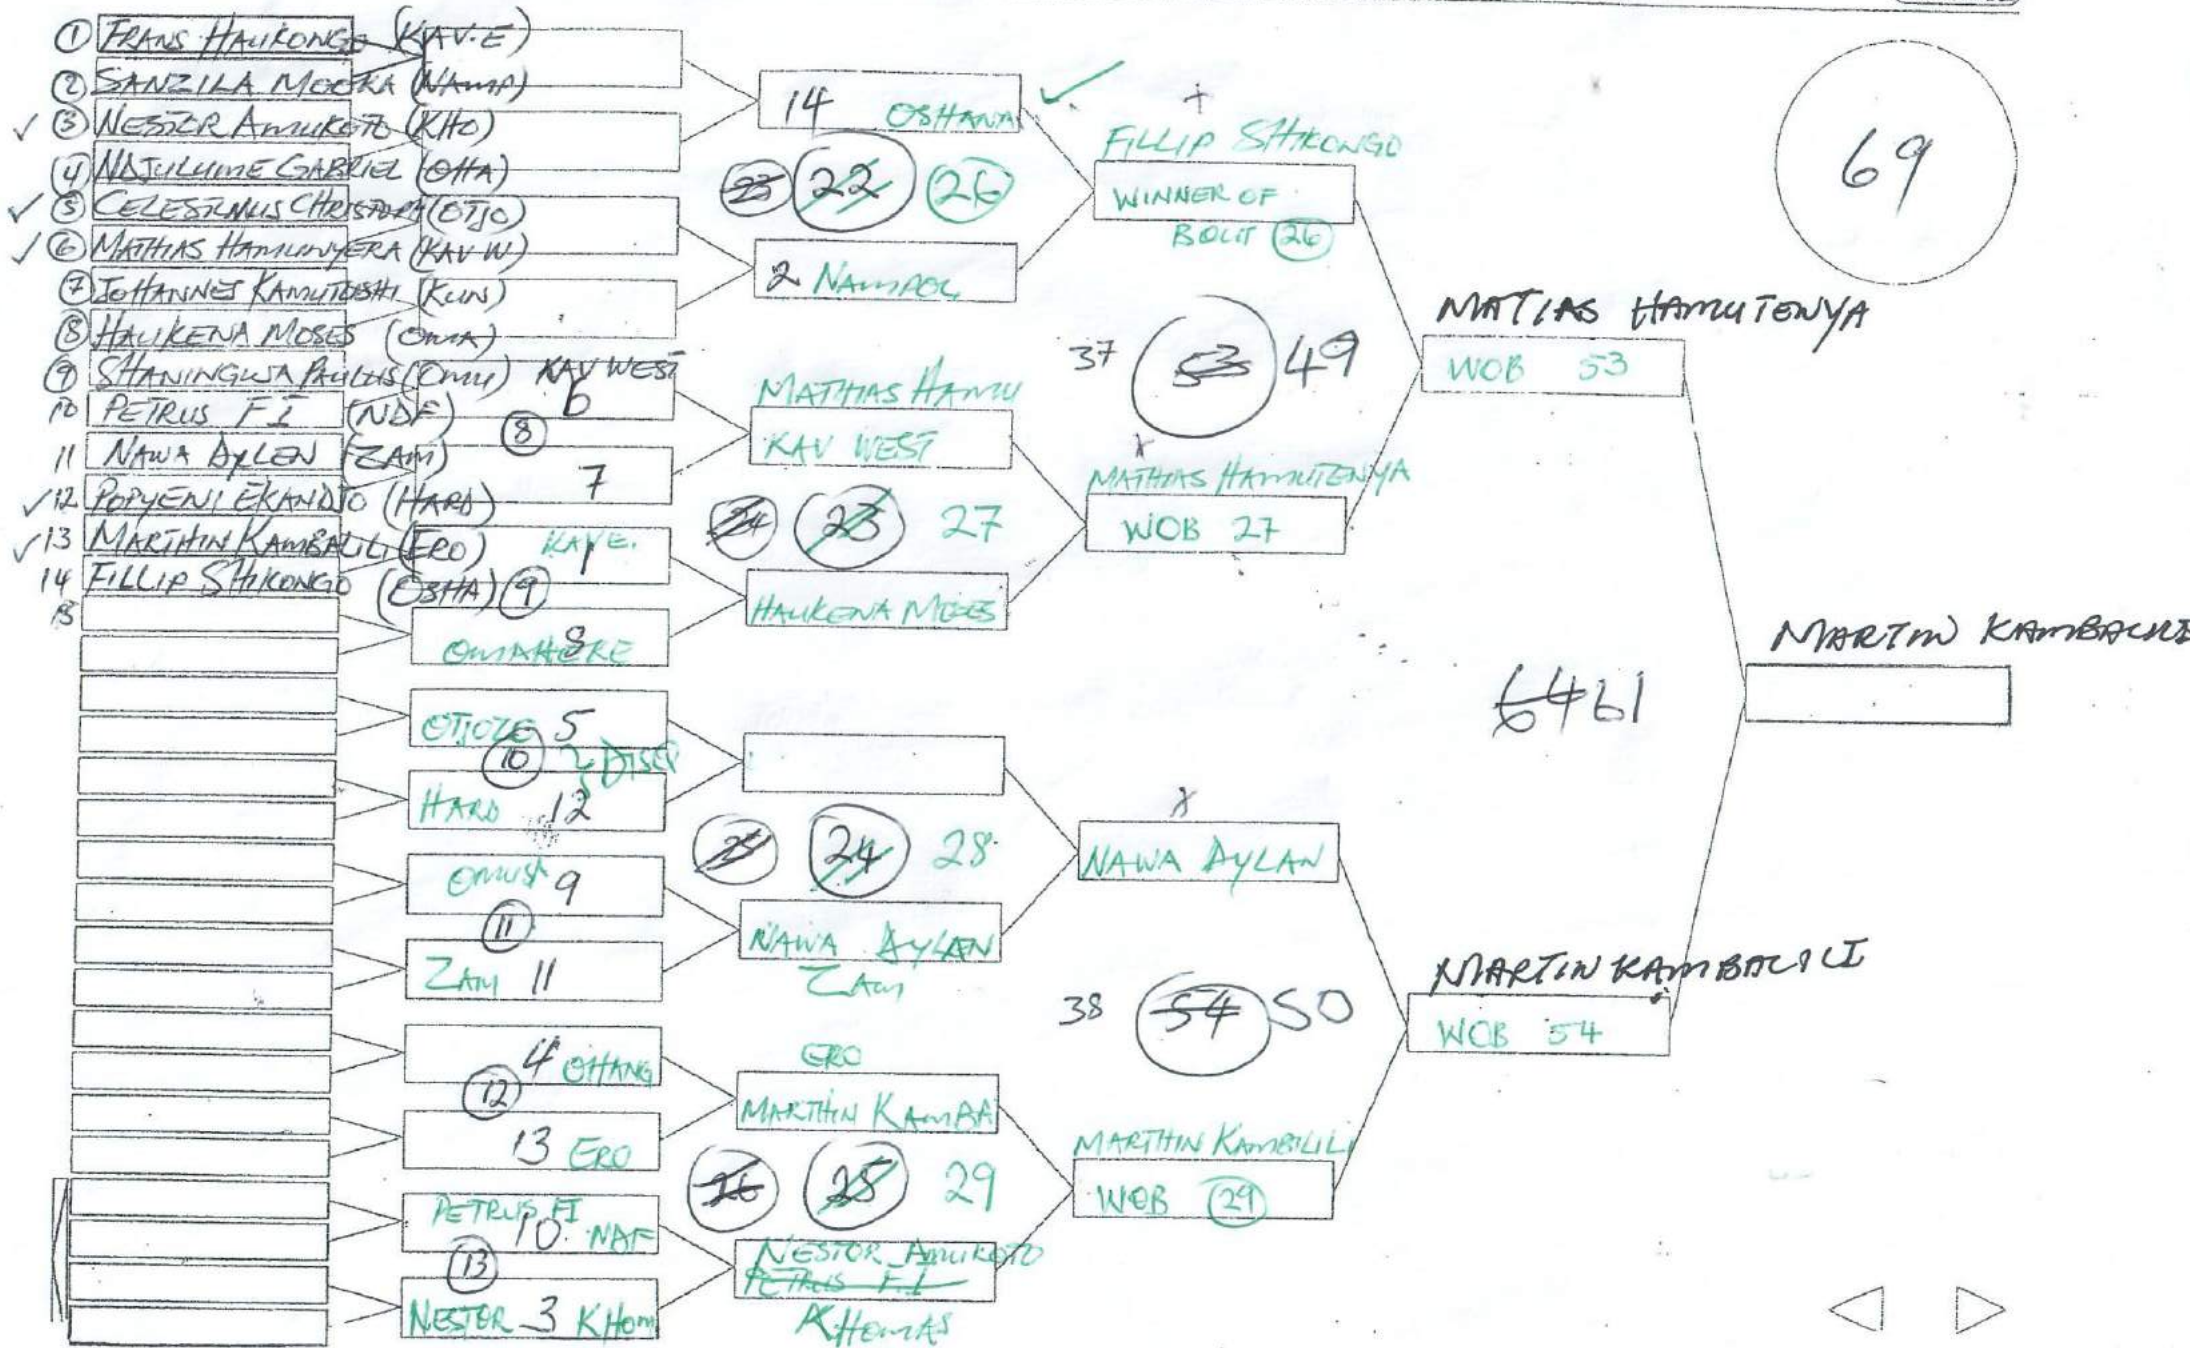 ① FRANS HAUKONGO (KAV.E)
② SANZILA MOOKA (NAMP)
✓ ③ NESTOR AMUKOTO (KHO)
④ NDJULUME GABRIEL (OHA)
✓ ⑤ CELESTINUS CHRISTOPH (OTJO)
✓ ⑥ MATHIAS HAMUNYERA (KAV W)
⑦ JOHANNES KAMUTOSHI (KUN)
⑧ HAUKENA MOSES (OMA)
⑨ SHANINGWA PAULUS (OMU)
10 PETRUS F I (NDF)
11 NAWA DYLEN (ZAM)
✓ 12 POPYENI EKANDJO (HARD)
✓ 13 MARTHIN KAMBALILI (ERO)
14 FILLIP SHIKONGO (OSHA)
15
KAV WEST
6
⑧
7
KAV E.
1
⑨
OMAHEKE 8
OTJOZE 5
⑩ } DISEP
HARD 12
OMUSA 9
⑪
ZAM 11
4 OHANG
⑫
13 ERO
PETRUS FI
10. NDF
⑬
NESTOR 3 KHOM
14 OSHANA ✓
23 22 26
2 NAMPOL
MATHIAS HAMU
KAV WEST
24 23 27
HAUKENA MOSES
25 24 28
NAWA DYLAN
ZAM
ERO
MARTHIN KAMBA
26 25 29
NESTOR AMUKOTO
PETRUS F.I
KHOMAS
FILLIP SHIKONGO
WINNER OF
BOUT 26
37 53 49
MATHIAS HAMUTENYA
WOB 27
NAWA DYLAN
38 54 50
MARTHIN KAMBILILI
WOB 29
MATIAS HAMUTENYA
WOB 53
64 61
MARTIN KAMBALILI
WOB 54
69
MARTIN KAMBALILI